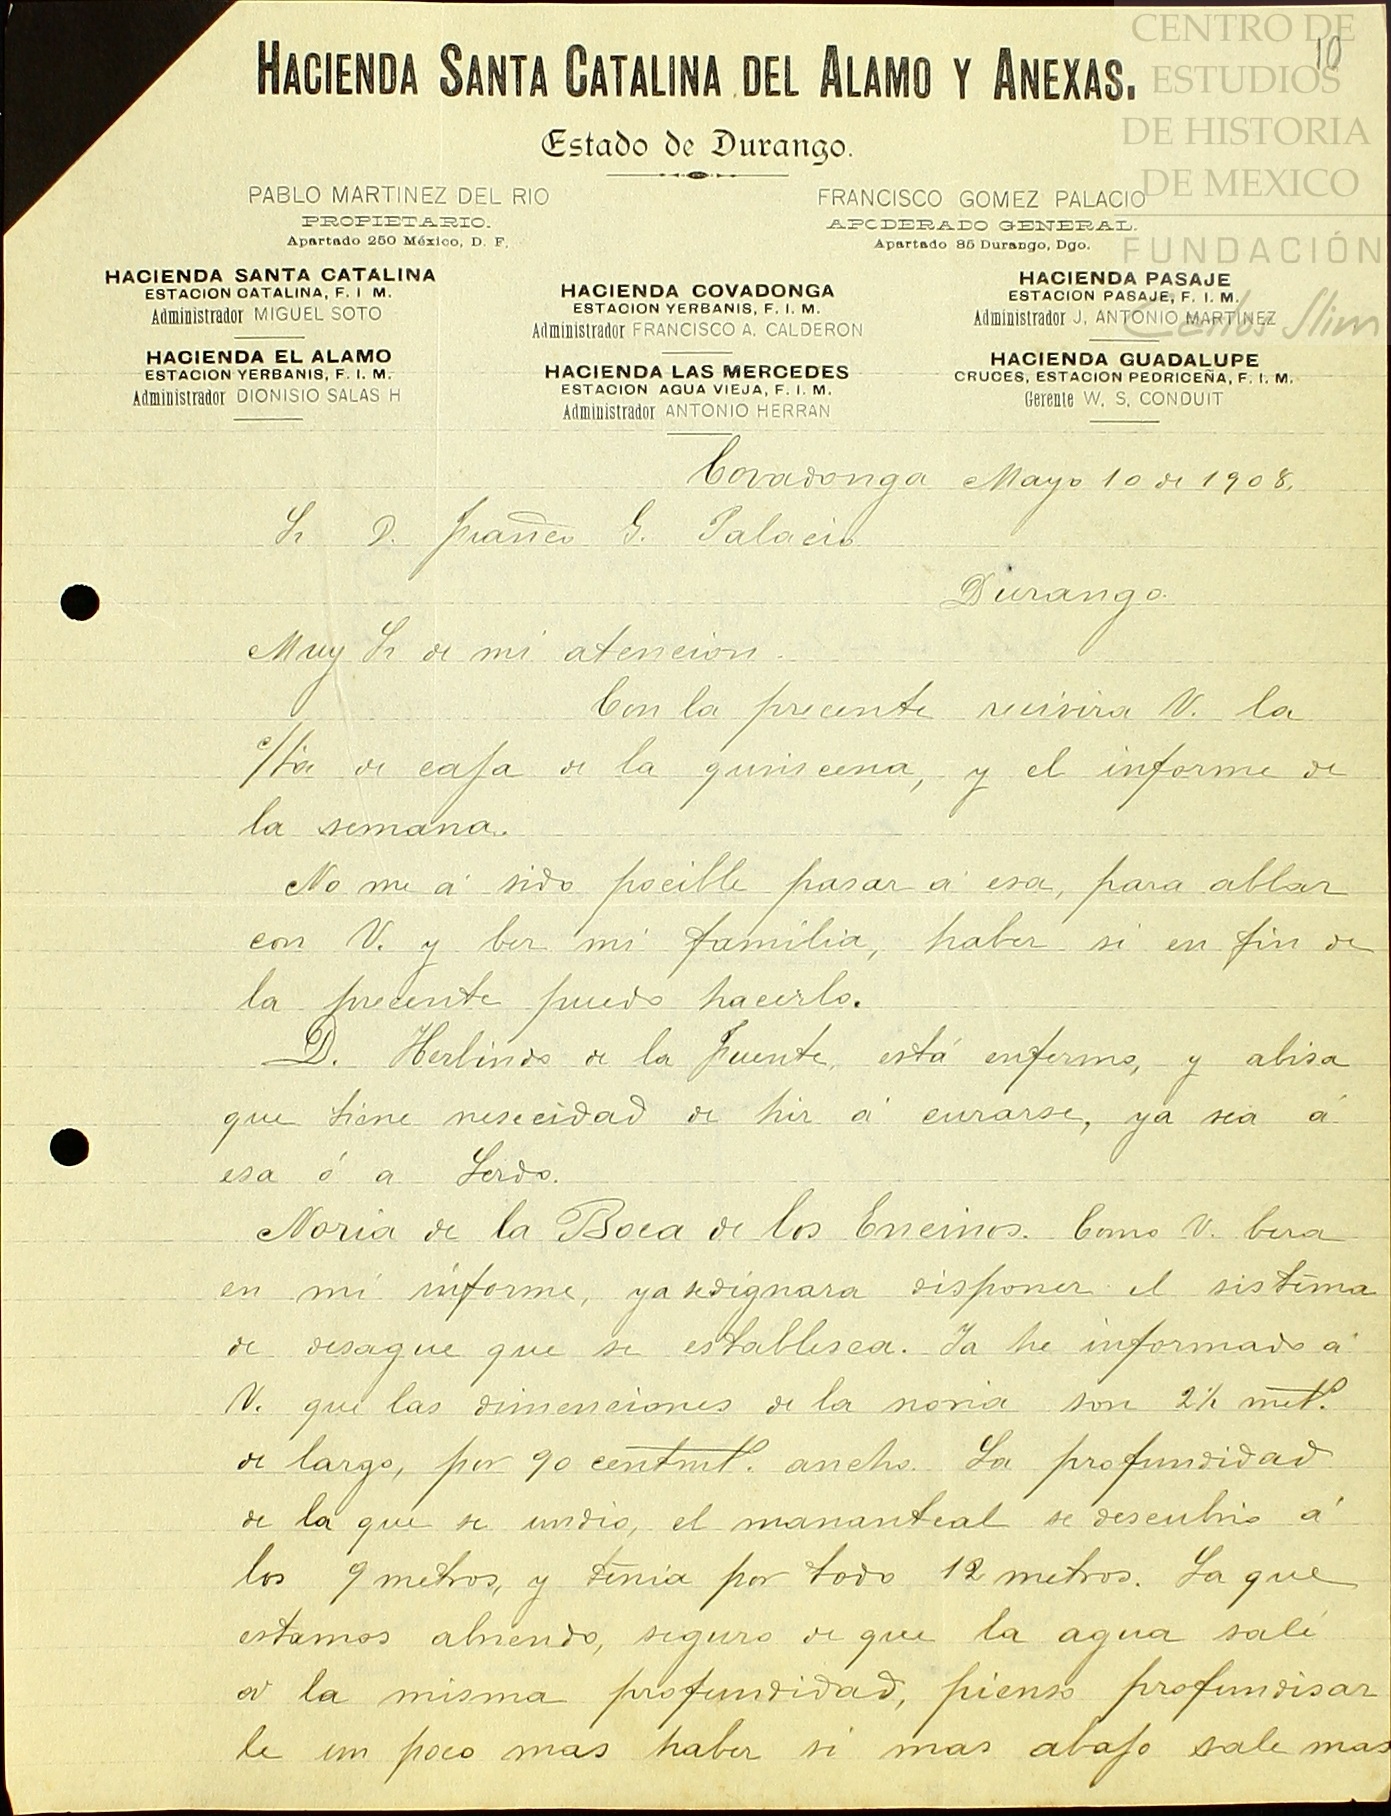 CENTRO DE
ESTUDIOS
DE HISTORIA
DE MEXICO
FUNDACIÓN
Carlos Slim
10
HACIENDA SANTA CATALINA DEL ALAMO Y ANEXAS.
Estado de Durango.
PABLO MARTINEZ DEL RIO
PROPIETARIO.
Apartado 250 México, D. F.
FRANCISCO GOMEZ PALACIO
APODERADO GENERAL.
Apartado 85 Durango, Dgo.
HACIENDA SANTA CATALINA
ESTACION CATALINA, F. I M.
Administrador MIGUEL SOTO
HACIENDA EL ALAMO
ESTACION YERBANIS, F. I. M.
Administrador DIONISIO SALAS H
HACIENDA COVADONGA
ESTACION YERBANIS, F. I. M.
Administrador FRANCISCO A. CALDERON
HACIENDA LAS MERCEDES
ESTACION AGUA VIEJA, F. I. M.
Administrador ANTONIO HERRAN
HACIENDA PASAJE
ESTACION PASAJE, F. I. M.
Administrador J. ANTONIO MARTINEZ
HACIENDA GUADALUPE
CRUCES, ESTACION PEDRICEÑA, F. I. M.
Gerente W. S. CONDUIT
Covadonga Mayo 10 de 1908.
Sr D. Franco G. Palacio
Durango.
Muy Sr de mi atencion.
Con la precente recivira V. la
c/ta de caja de la quinscena, y el informe de
la semana.
No me á sido pocible pasar á esa, para ablar
con V. y ber mi familia, haber si en fin de
la precente puedo hacerlo.
D. Herlindo de la Fuente, está enfermo, y abisa
que tiene nesecidad de hir á curarse, ya sea á
esa ó a Lerdo.
Noria de la Boca de los Encinos. Como V. bera
en mi informe, ya se dignara disponer el sistema
de desague que se establesca. Ya he informado á
V. que las dimenciones de la noria son 2½ mets.
de largo, por 90 centmts. ancho. La profundidad
de la que se undio, el mananteal se descubrio á
los 9 metros, y tenia por todo 12 metros. La que
estamos abriendo, seguro de que la agua salé
a la misma profundidad, pienso profundisar
le un poco mas haber si mas abajo sale mas